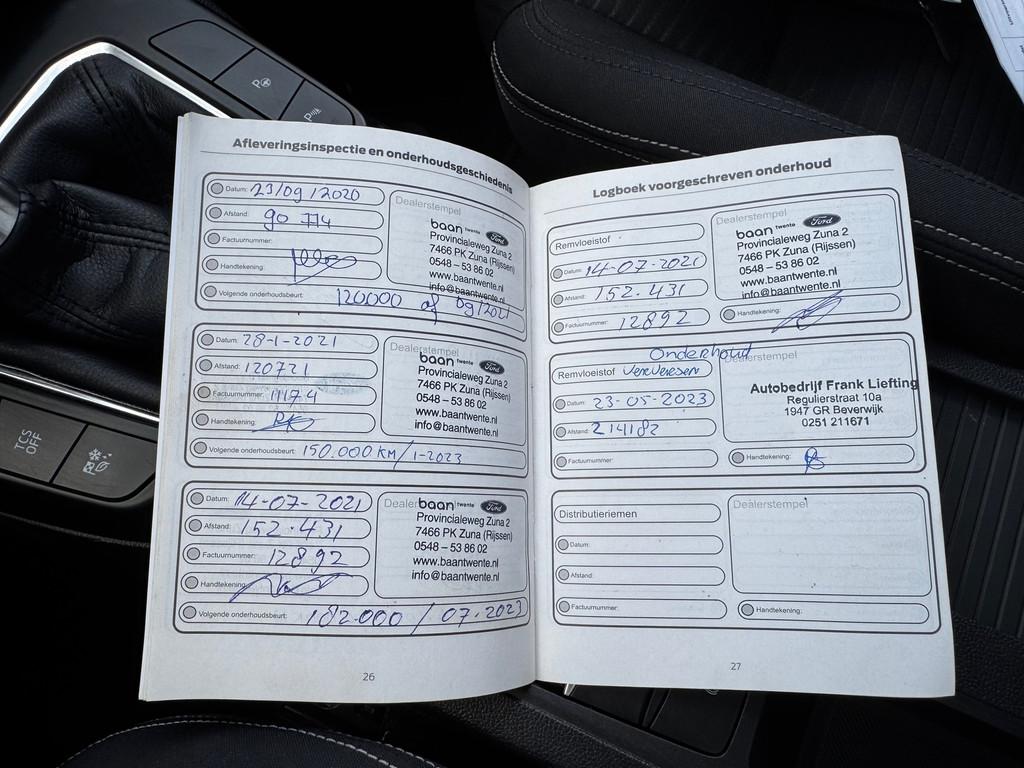 Afleveringsinspectie en onderhoudsgeschiedenis
Datum: 23/09/2020
Afstand: 90 774
Factuurnummer:
Handtekening:
Volgende onderhoudsbeurt: 120000 of 09/2021
Dealerstempel
baan twente Ford
Provincialeweg Zuna 2
7466 PK Zuna (Rijssen)
0548 – 53 86 02
www.baantwente.nl
info@baantwente.nl
Datum: 28-1-2021
Afstand: 120721
Factuurnummer: 11174
Handtekening:
Volgende onderhoudsbeurt: 150.000 KM/1-2023
Dealerstempel
baan twente Ford
Provincialeweg Zuna 2
7466 PK Zuna (Rijssen)
0548 – 53 86 02
www.baantwente.nl
info@baantwente.nl
Datum: 14-07-2021
Afstand: 152.431
Factuurnummer: 12892
Handtekening:
Volgende onderhoudsbeurt: 182.000 / 07.2023
Dealer
baan twente Ford
Provincialeweg Zuna 2
7466 PK Zuna (Rijssen)
0548 – 53 86 02
www.baantwente.nl
info@baantwente.nl
26
Logboek voorgeschreven onderhoud
Remvloeistof
Datum: 14-07-2021
Afstand: 152.431
Factuurnummer: 12892
Dealerstempel
baan twente Ford
Provincialeweg Zuna 2
7466 PK Zuna (Rijssen)
0548 – 53 86 02
www.baantwente.nl
info@baantwente.nl
Handtekening:
Onderhoud
Remvloeistof Ververesen
Datum: 23-05-2023
Afstand: 214182
Factuurnummer:
Dealerstempel
Autobedrijf Frank Liefting
Regulierstraat 10a
1947 GR Beverwijk
0251 211671
Handtekening:
Distributieriemen
Datum:
Afstand:
Factuurnummer:
Dealerstempel
Handtekening:
27
TCS
OFF